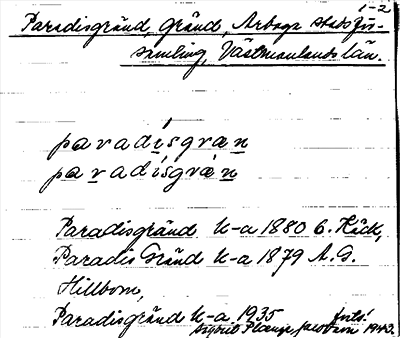 1-2
Paradisgränd, gränd, Arboga stads för-
samling, Västmanlands län.
paradisgrän
paradisgrän
Paradisgränd k-a 1880 G. Käck,
Paradis Gränd k-a 1879 A. G.
Hillbom,
Paradisgränd k-a 1935
1943.